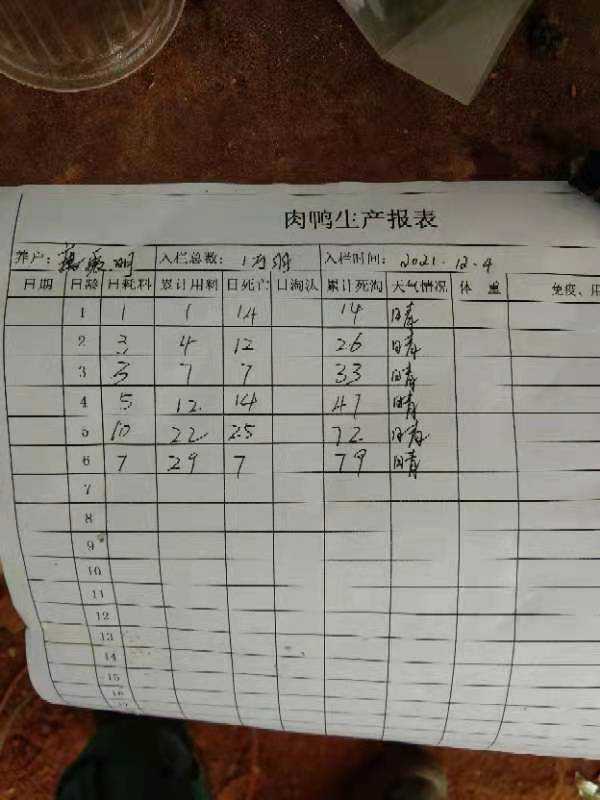 肉鸭生产报表
养户： 入栏总数： 1万 入栏时间： 2021.12.4
日期 日龄 日耗料 累计用料 日死亡 日淘汰 累计死淘 天气情况 体 重 免疫、用
1 1 1 14 14 晴
2 3 4 12 26 晴
3 3 7 7 33 晴
4 5 12 14 47 晴
5 10 22 25 72 晴
6 7 29 7 79 晴
7
8
9
10
11
12
13
14
15
16
17